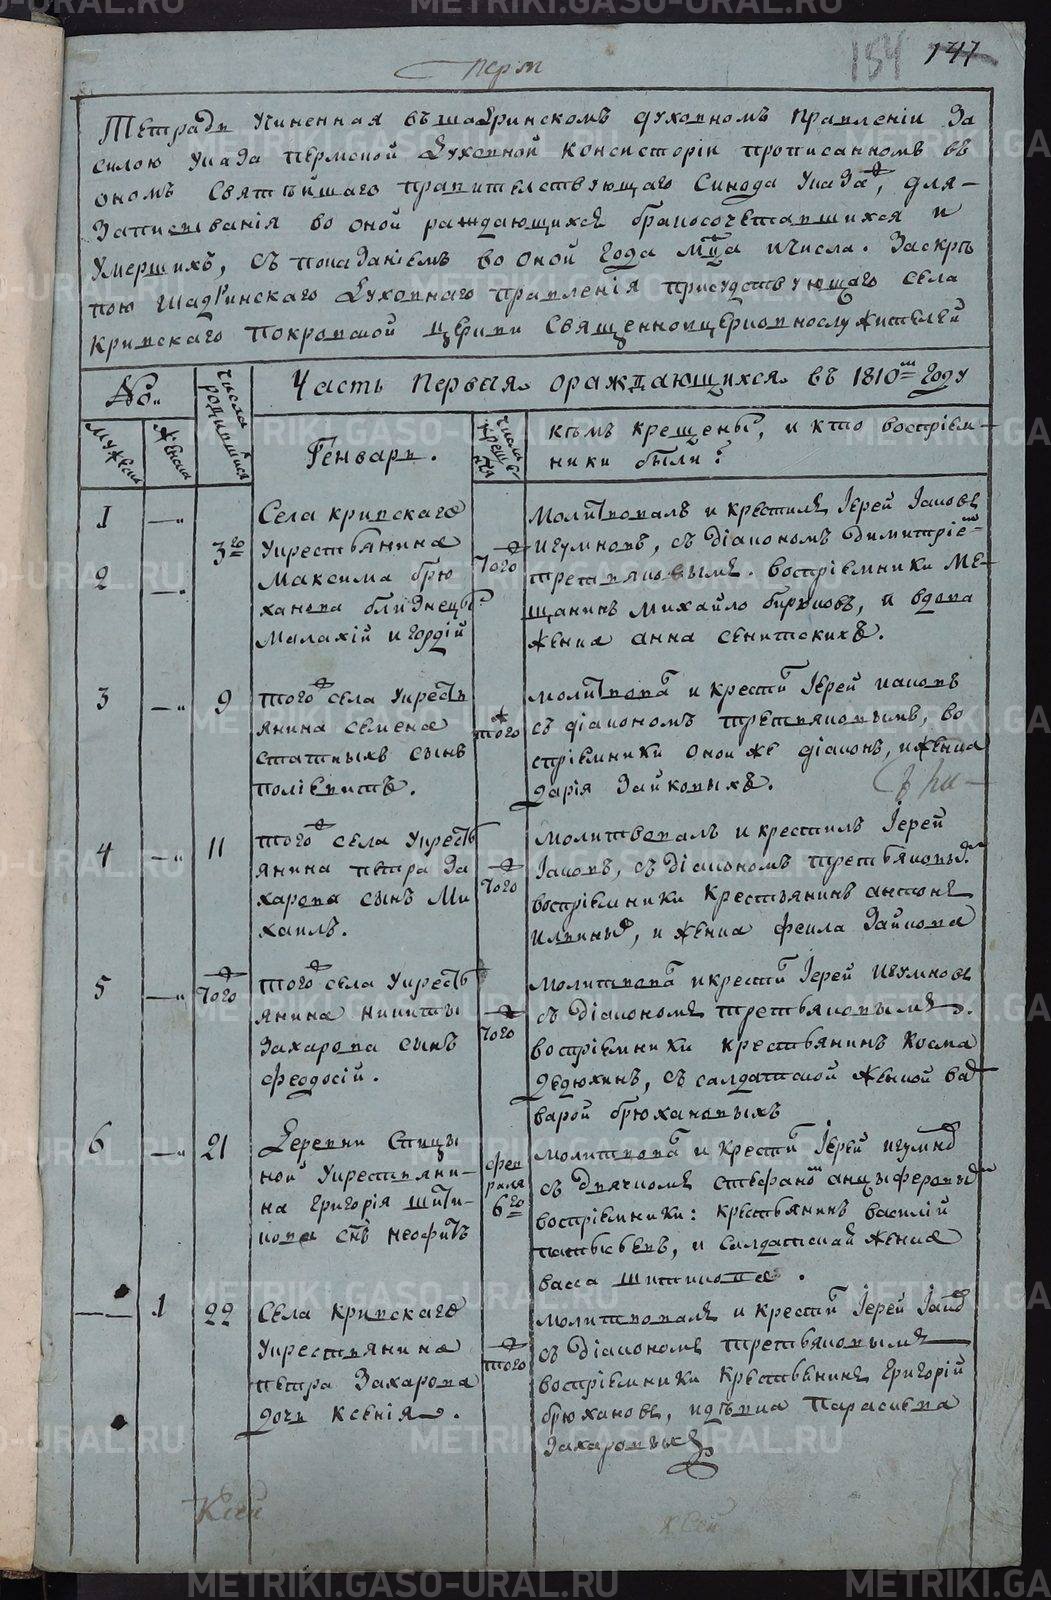 154 147
перм
Тетрадь учиненная въ шадринскомъ духовномъ правленіи за
силою указа пермской духовной консисторіи прописанномъ въ
ономъ святѣйшаго правительствующаго синода указа, для
записыванія во оной раждающихся бракосочетавшихся и
умершихъ, съ показаніемъ во оной года мца и числа. За скрѣ
пою шадринскаго духовнаго правленія присудствующаго села
кривскаго покровской церкви священноцерковнослужителей
No.
числа родившихся
Часть первыя ораждающихся въ 1810м году
мужеска
женска
Генварь.
числа крещенія
кѣмъ крещены, и кто воспріем-
ники были?
1 —
2 —
3го
Села кривскаго
у крестьянина
Максима брю
ханова близнецы
Малахій и гордій
того
молитвовалъ и крестилъ Іерей Іаковъ
игумновъ, съ діакономъ димитріем
третьяковымъ. воспріемники ме-
щанинъ михайло бирюковъ, и вдова
женка анна сенитскихъ.
3 —
9
того села у кресть
янина семена
статныхъ сынъ
поліевктъ.
того
молитвова и крести Іерей иаковъ
съ діакономъ третьяковымъ, во
спріемники оной же діаконъ, и женка
дарія Зайковыхъ.
4 —
11
того села у кресть
янина петра за
харова сынъ ми
хаилъ.
того
молитвовалъ и крестилъ Іерей
Іаковъ, съ діакономъ третьяковы
воспріемники крестьянинъ антонъ
ильины, и женка фекла Зайкова
5 —
того
того села у кресть
янина никиты
захарова сынъ
феодосій.
того
молитвова и крести Іерей игумновъ
съ діакономъ третьяковымъ.
воспріемники крестьянинъ косма
дедюхинъ, съ салдатской женкой вар
варой брюхановыхъ
6 —
21
деревни спицы
ной у крестьяни-
на григорія шити-
кова снъ неофитъ
февраля 6го
молитвова и крести Іерей игумно
съ дьячкомъ стефано анцыферовы
воспріемники: крестьянинъ василій
и салдатская женка
васса шитикова.
— 1
22
Села кривскаго
у крестьянина
петра захарова
дочь ксенія.
того
молитвовалъ и крести Іерей Іако
съ діакономъ третьяковымъ
воспріемники крестьянинъ григорій
брюхановъ, и дѣвка параскева
захаровыхъ